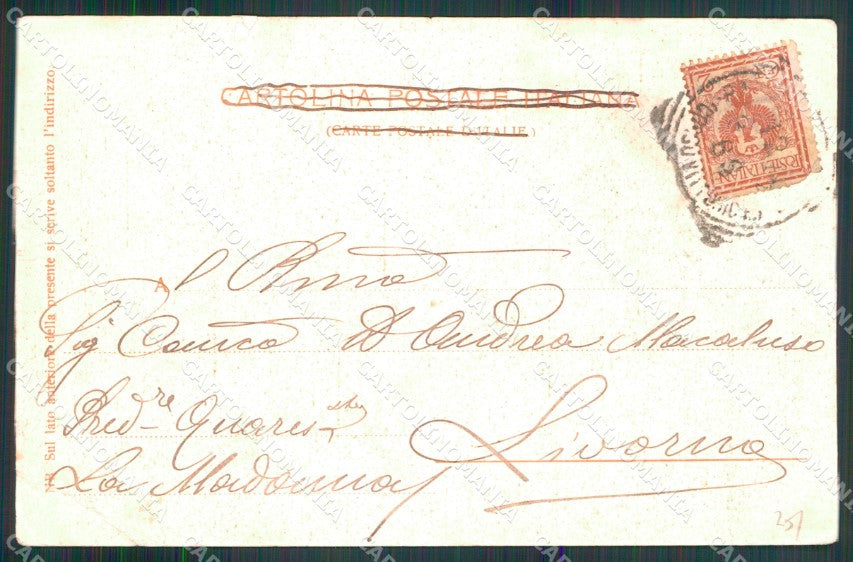 CARTOLINA POSTALE ITALIANA
(CARTE POSTALE D'ITALIE)
Al Rmo
Sig Canco D Andrea Macaluso
Pred-re Quares-
La Madonna
Livorno
NB. Sul lato anteriore della presente si scrive soltanto l'indirizzo.
POSTE ITALIANE
25/
CARTOLINOMANIA